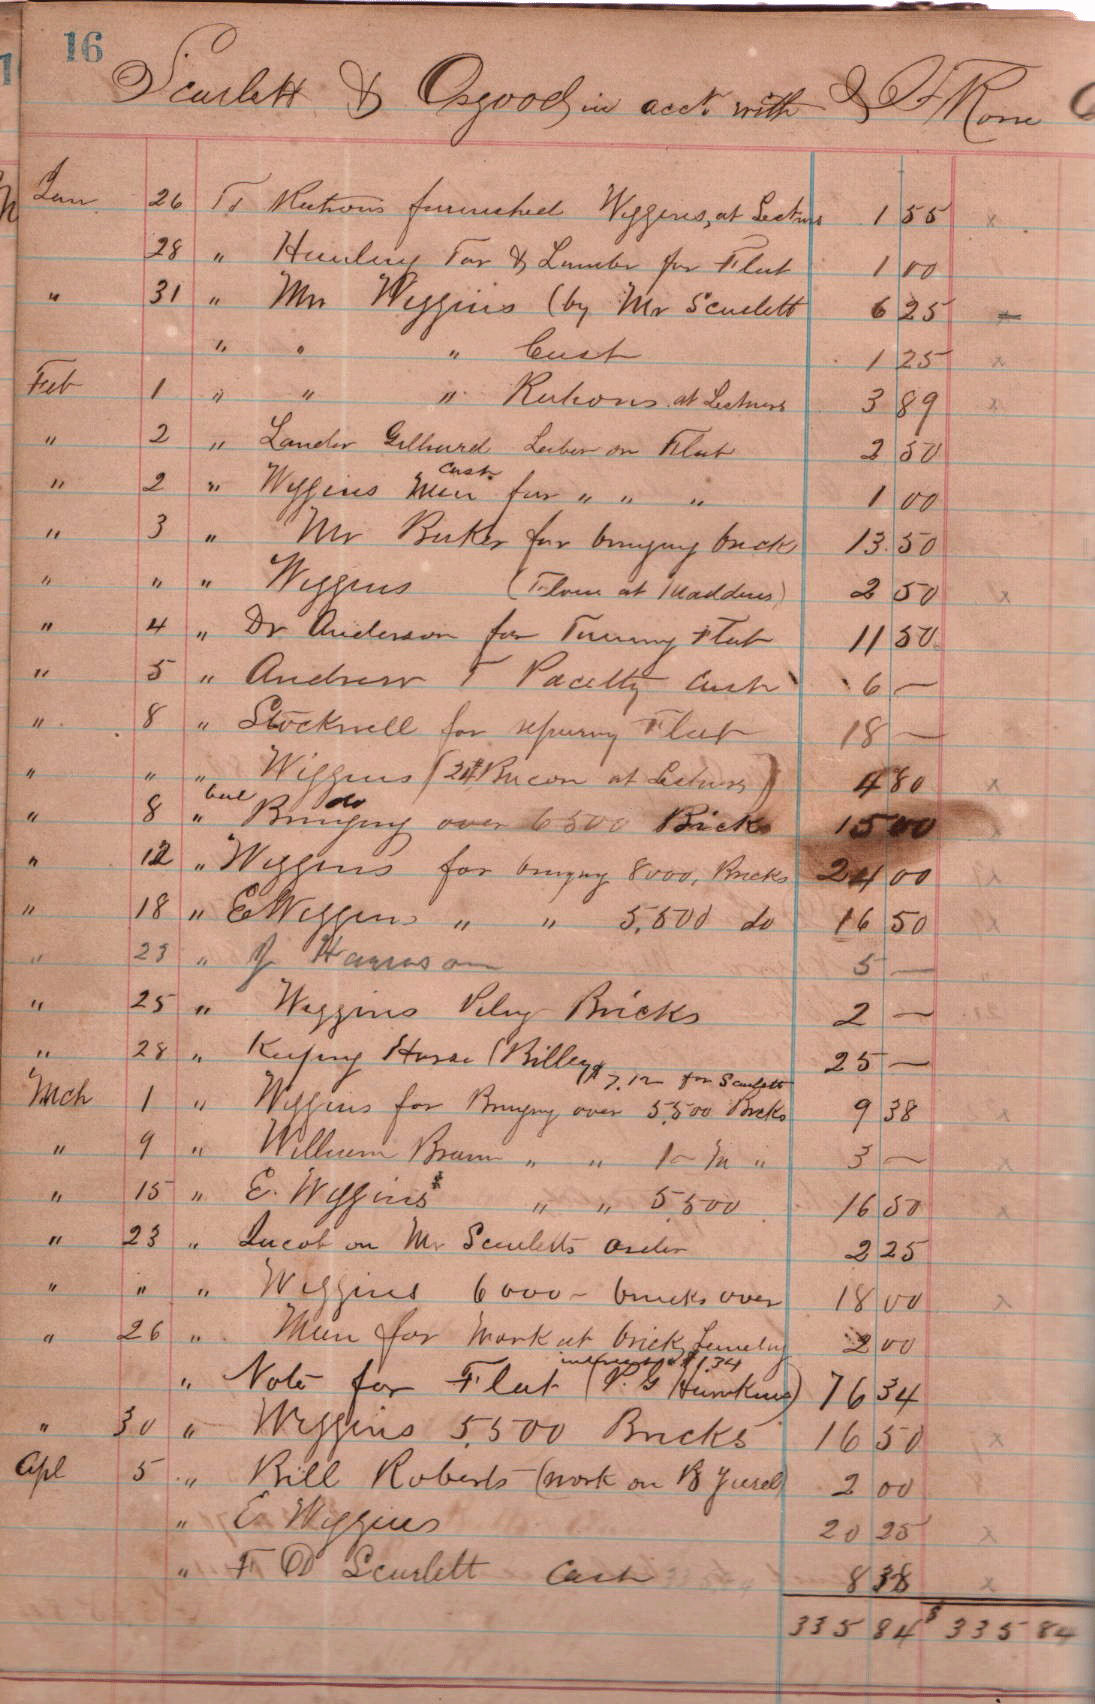 16
Scarlett & Osgood in acct with J F Rowe
Jan 26 To Rations furnished Wiggins, at Lectures 1 55 x
28 " Hauling Tar & Lumber for Flat 1 00
" 31 " Mr Wiggins (by Mr Scarlett 6 25
" " " Cash 1 25 x
Feb 1 " " " Rations at Lectures 3 89 x
" 2 " Lander Gelhard Labor on Flat 2 50
cash
" 2 " Wiggins Men for " " " 1 00
" 3 " Mr Baker for bringing brick 13.50
" " " Wiggins (Flour at Maddens) 2 50 x
" 4 " Dr Anderson for Turning Flat 11 50
" 5 " Andrew T Pacetty Cash 6 —
" 8 " Stockwell for repairing Flat 18 —
" " " Wiggins (24# Bacon at Lectures) 4 80 x
bal do
" 8 " Bringing over 6500 Bricks 15 00
" 12 " Wiggins for bringing 8000, Bricks 24 00
" 18 " E Wiggins " " 5,500 do 16 50
" 23 " J Harrison 5 —
" 25 " Wiggins Piling Bricks 2 —
" 28 " Keeping Horse (Billey) 25 —
$7.12 for Scarlett
Mch 1 " Wiggins for Bringing over 5,500 Bricks 9 38 x
" 9 " William Braun " " 1 - M " 3 — x
" 15 " E. Wiggins " " 5500 16 50 x
" 23 " Jacob on Mr Scarletts order 2 25
" " " Wiggins 6000 - bricks over 18 00 x
" 26 " Men for work at brick 2 00
interest $1.34
" Note for Flat (P. G Hawkins) 76 34
" 30 " Wiggins 5,500 Bricks 16 50 x
Apl 5 " Bill Roberts (work on B Yard) 2 00
" E Wiggins 20 25 x
" F D Scarlett Cash 8 38 x
335 84 $ 335 84